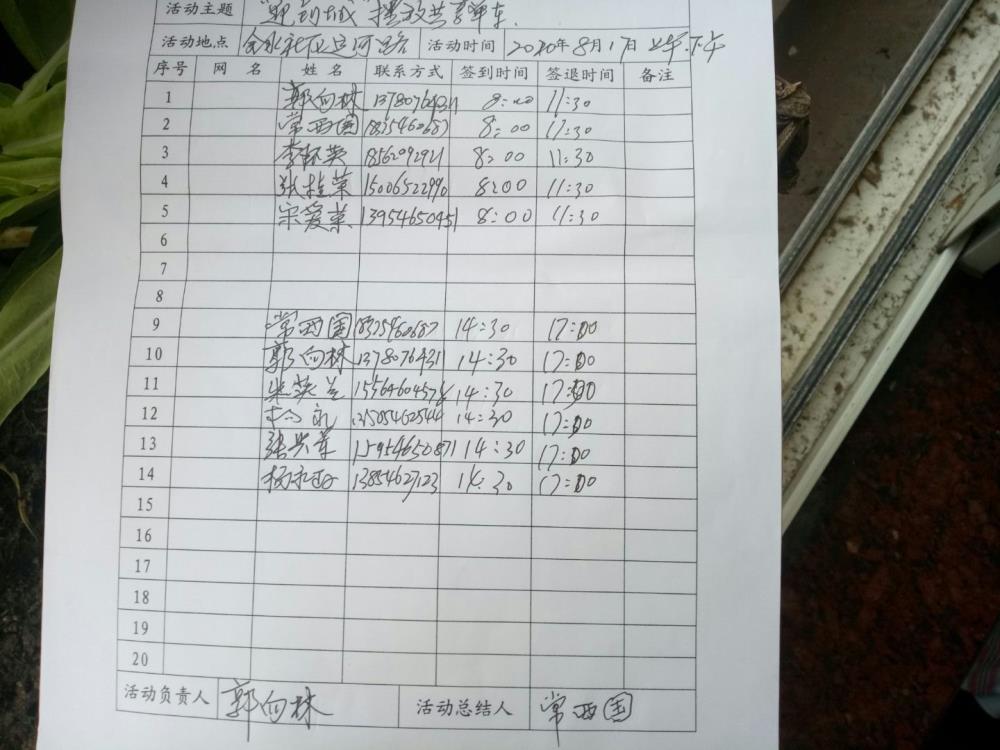 活动主题 "迎创城"摆放共享单车.
活动地点 社区运河路 活动时间 2020年8月17日上午下午
序号 网名 姓名 联系方式 签到时间 签退时间 备注
1 郭向林 8:00 11:30
2 常西国 8:00 11:30
3 李怀英 8:00 11:30
4 张桂荣 15006522990 8:00 11:30
5 宋爱菜 13954650451 8:00 11:30
6
7
8
9 常西国 14:30 17:00
10 郭向林 14:30 17:00
11 14:30 17:00
12 14:30 17:00
13 15954650871 14:30 17:00
14 14:30 17:00
15
16
17
18
19
20
活动负责人 郭向林 活动总结人 常西国